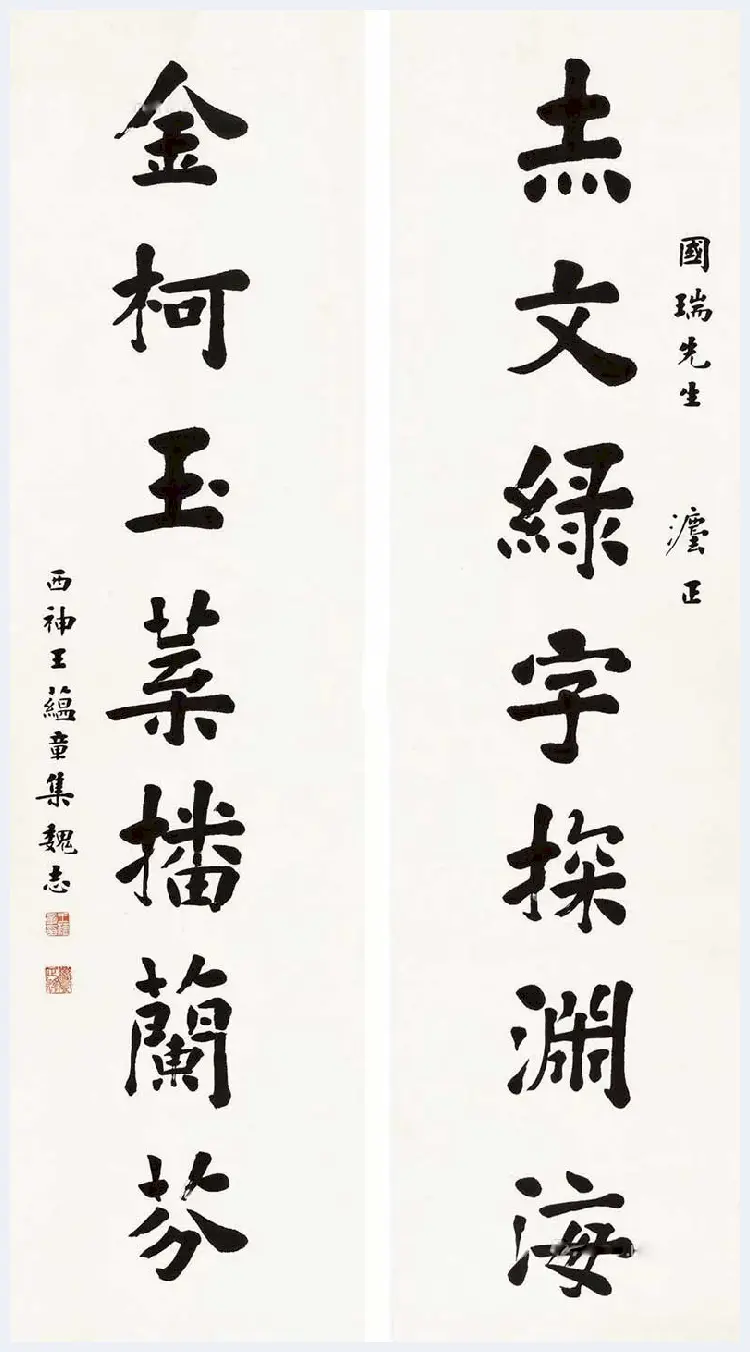 國瑞先生 正
赤文綠字探淵海
金柯玉葉播蘭芬
西神王蘊章集魏志